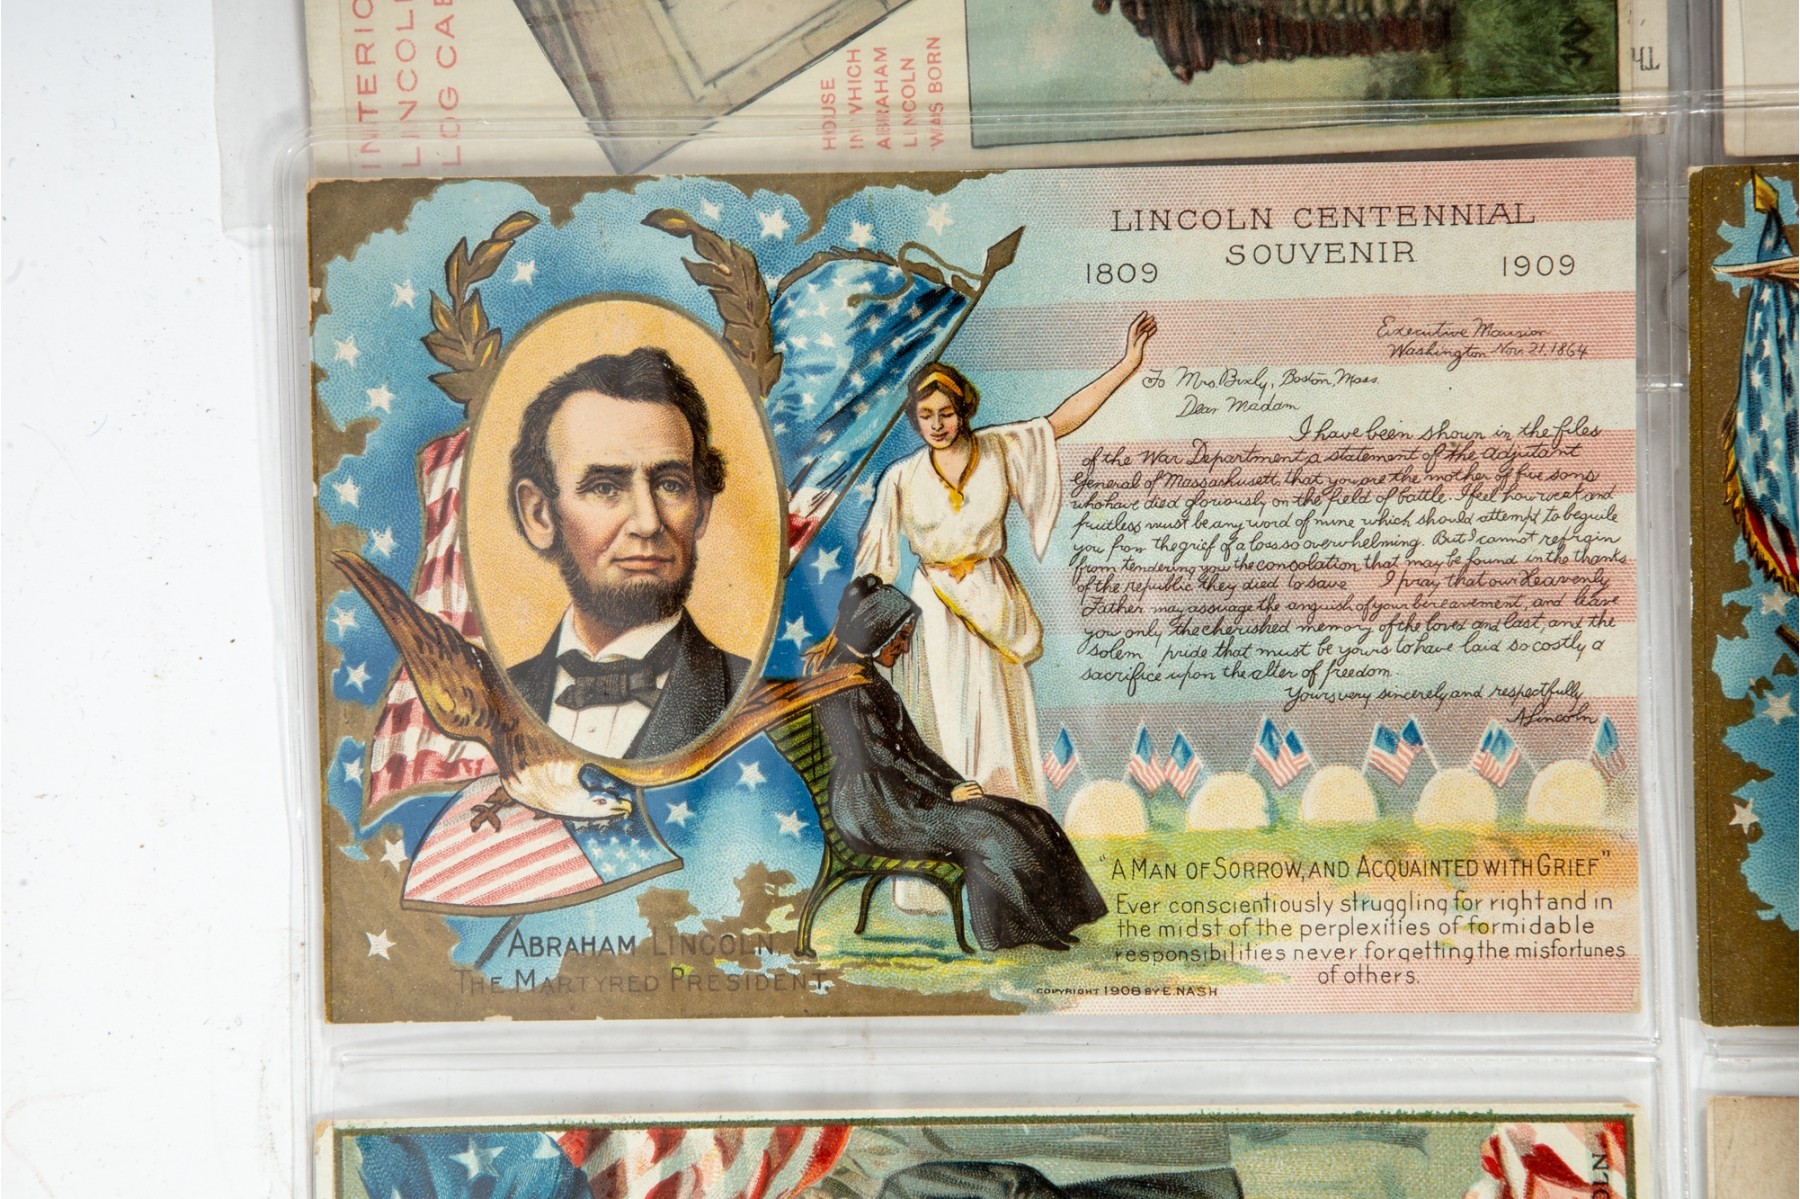 INTERIO
LINCOLN
LOG CAB
HOUSE
IN WHICH
ABRAHAM
LINCOLN
WAS BORN
LINCOLN CENTENNIAL
SOUVENIR
1809 1909
Executive Mansion
Washington Nov. 21. 1864
To Mrs. Bixly, Boston, Mass.
Dear Madam
I have been shown in the files
of the War Department a statement of the Adjutant
General of Massachusett, that you are the mother of five sons
who have died gloriously on the field of battle. I feel how weak and
fruitless must be any word of mine which should attempt to beguile
you from the grief of a loss so overwhelming. But I cannot refrain
from tendering you the consolation that may be found in the thanks
of the republic they died to save I pray that our Heavenly
Father may assuage the anguish of your bereavement, and leave
you only the cherished memory of the loved and lost, and the
solem pride that must be yours to have laid so costly a
sacrifice upon the alter of freedom.
Yours very sincerely and respectfully
A Lincoln
"A MAN OF SORROW, AND ACQUAINTED WITH GRIEF"
Ever conscientiously struggling for right and in
the midst of the perplexities of formidable
responsibilities never forgetting the misfortunes
of others.
ABRAHAM LINCOLN.
THE MARTYRED PRESIDENT.
COPYRIGHT 1908 BY E. NASH
OLN